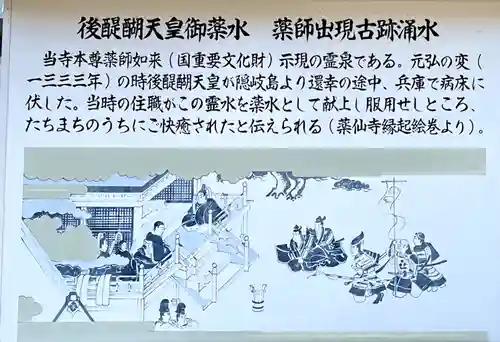 後醍醐天皇御薬水　薬師出現古跡涌水
当寺本尊薬師如来（国重要文化財）示現の霊泉である。元弘の変（
一三三三年）の時後醍醐天皇が隠岐島より還幸の途中、兵庫で病床に
伏した。当時の住職がこの霊水を薬水として献上し服用せしところ、
たちまちのうちにご快癒されたと伝えられる（薬仙寺縁起絵巻より）。